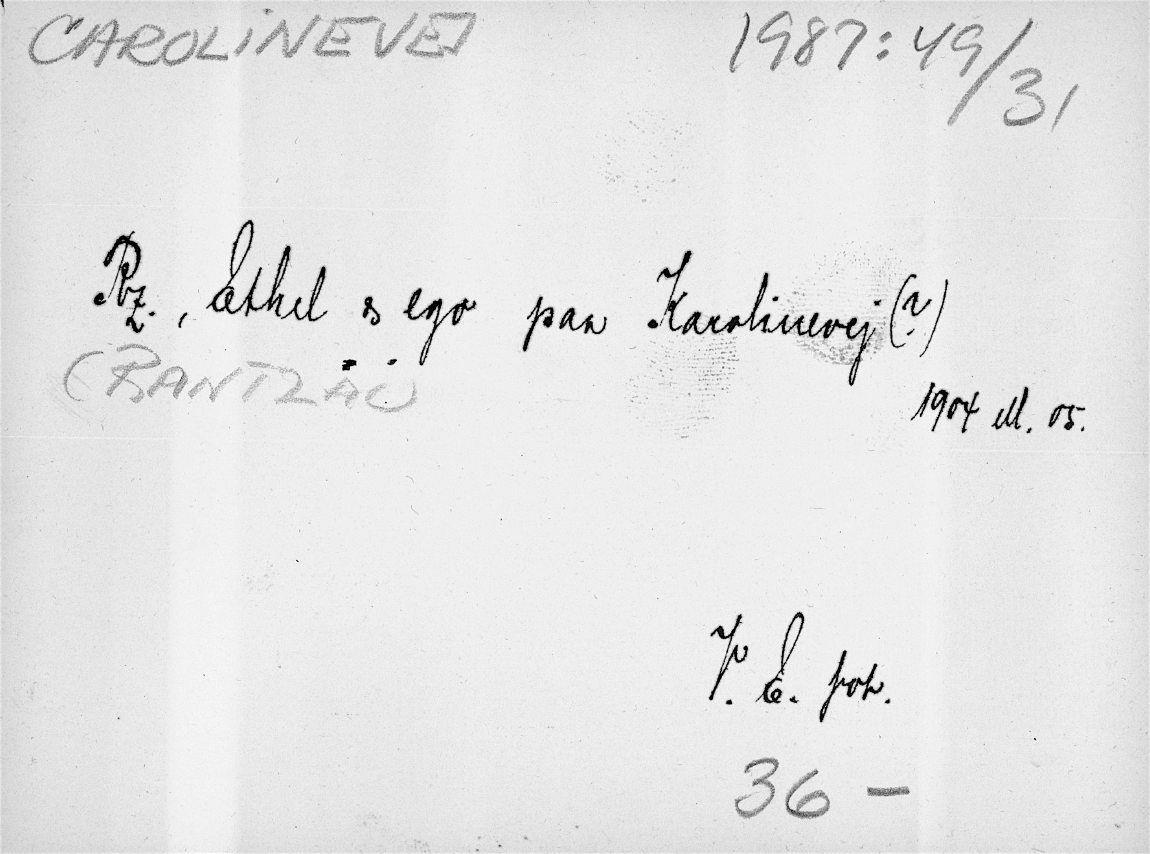 CAROLINEVEJ
1987:49/31
Rz., Ethel & ego paa Karolinevej (?)
(RANTZAU)
1904 M. 05.
V. E. fot.
36 –